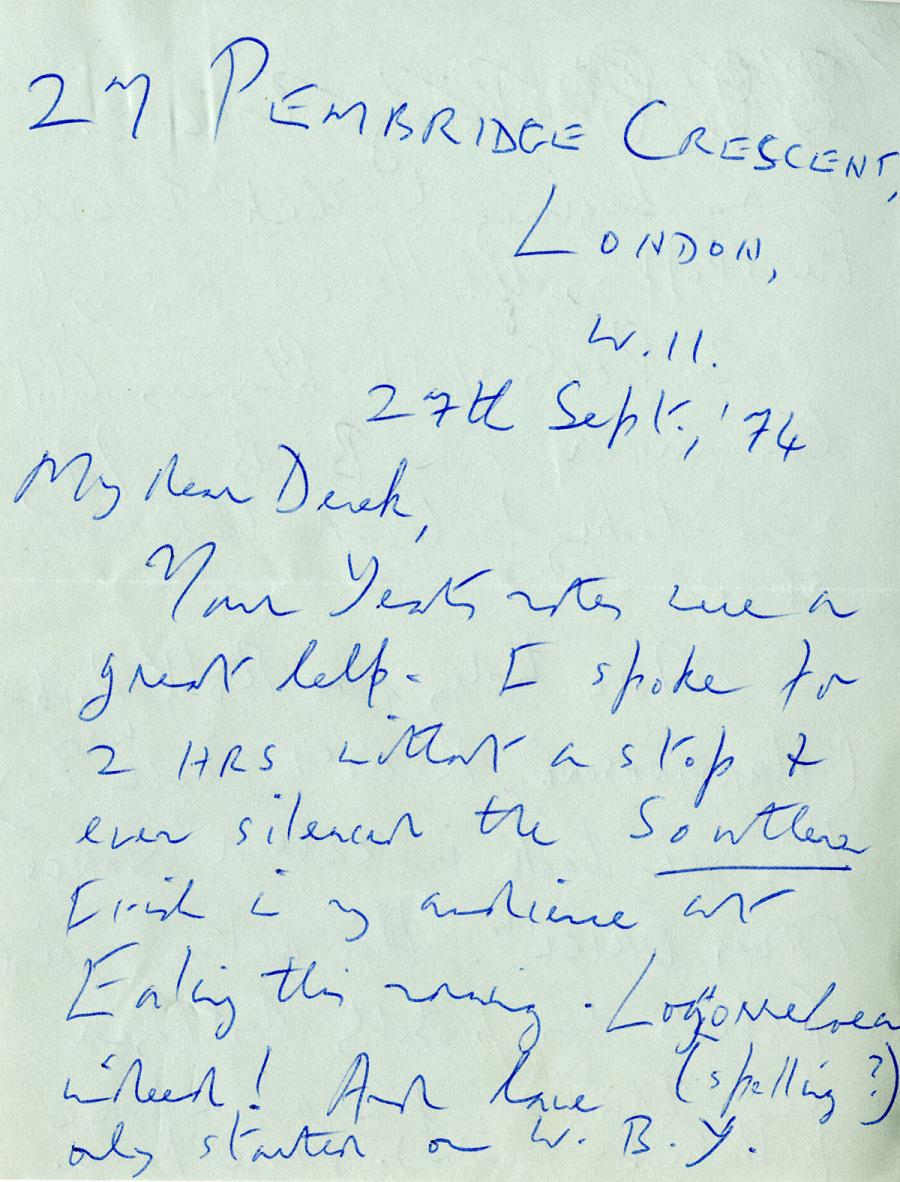 27 PEMBRIDGE CRESCENT,
LONDON,
W.11.
27th Sept., '74
My dear Derek,
Your Yeats notes were a
great help. I spoke for
2 HRS without a stop &
even silenced the Southern
Irish in my audience at
Ealing this morning. Logorrhoea
indeed! And have (spelling?)
only started on W. B. Y.